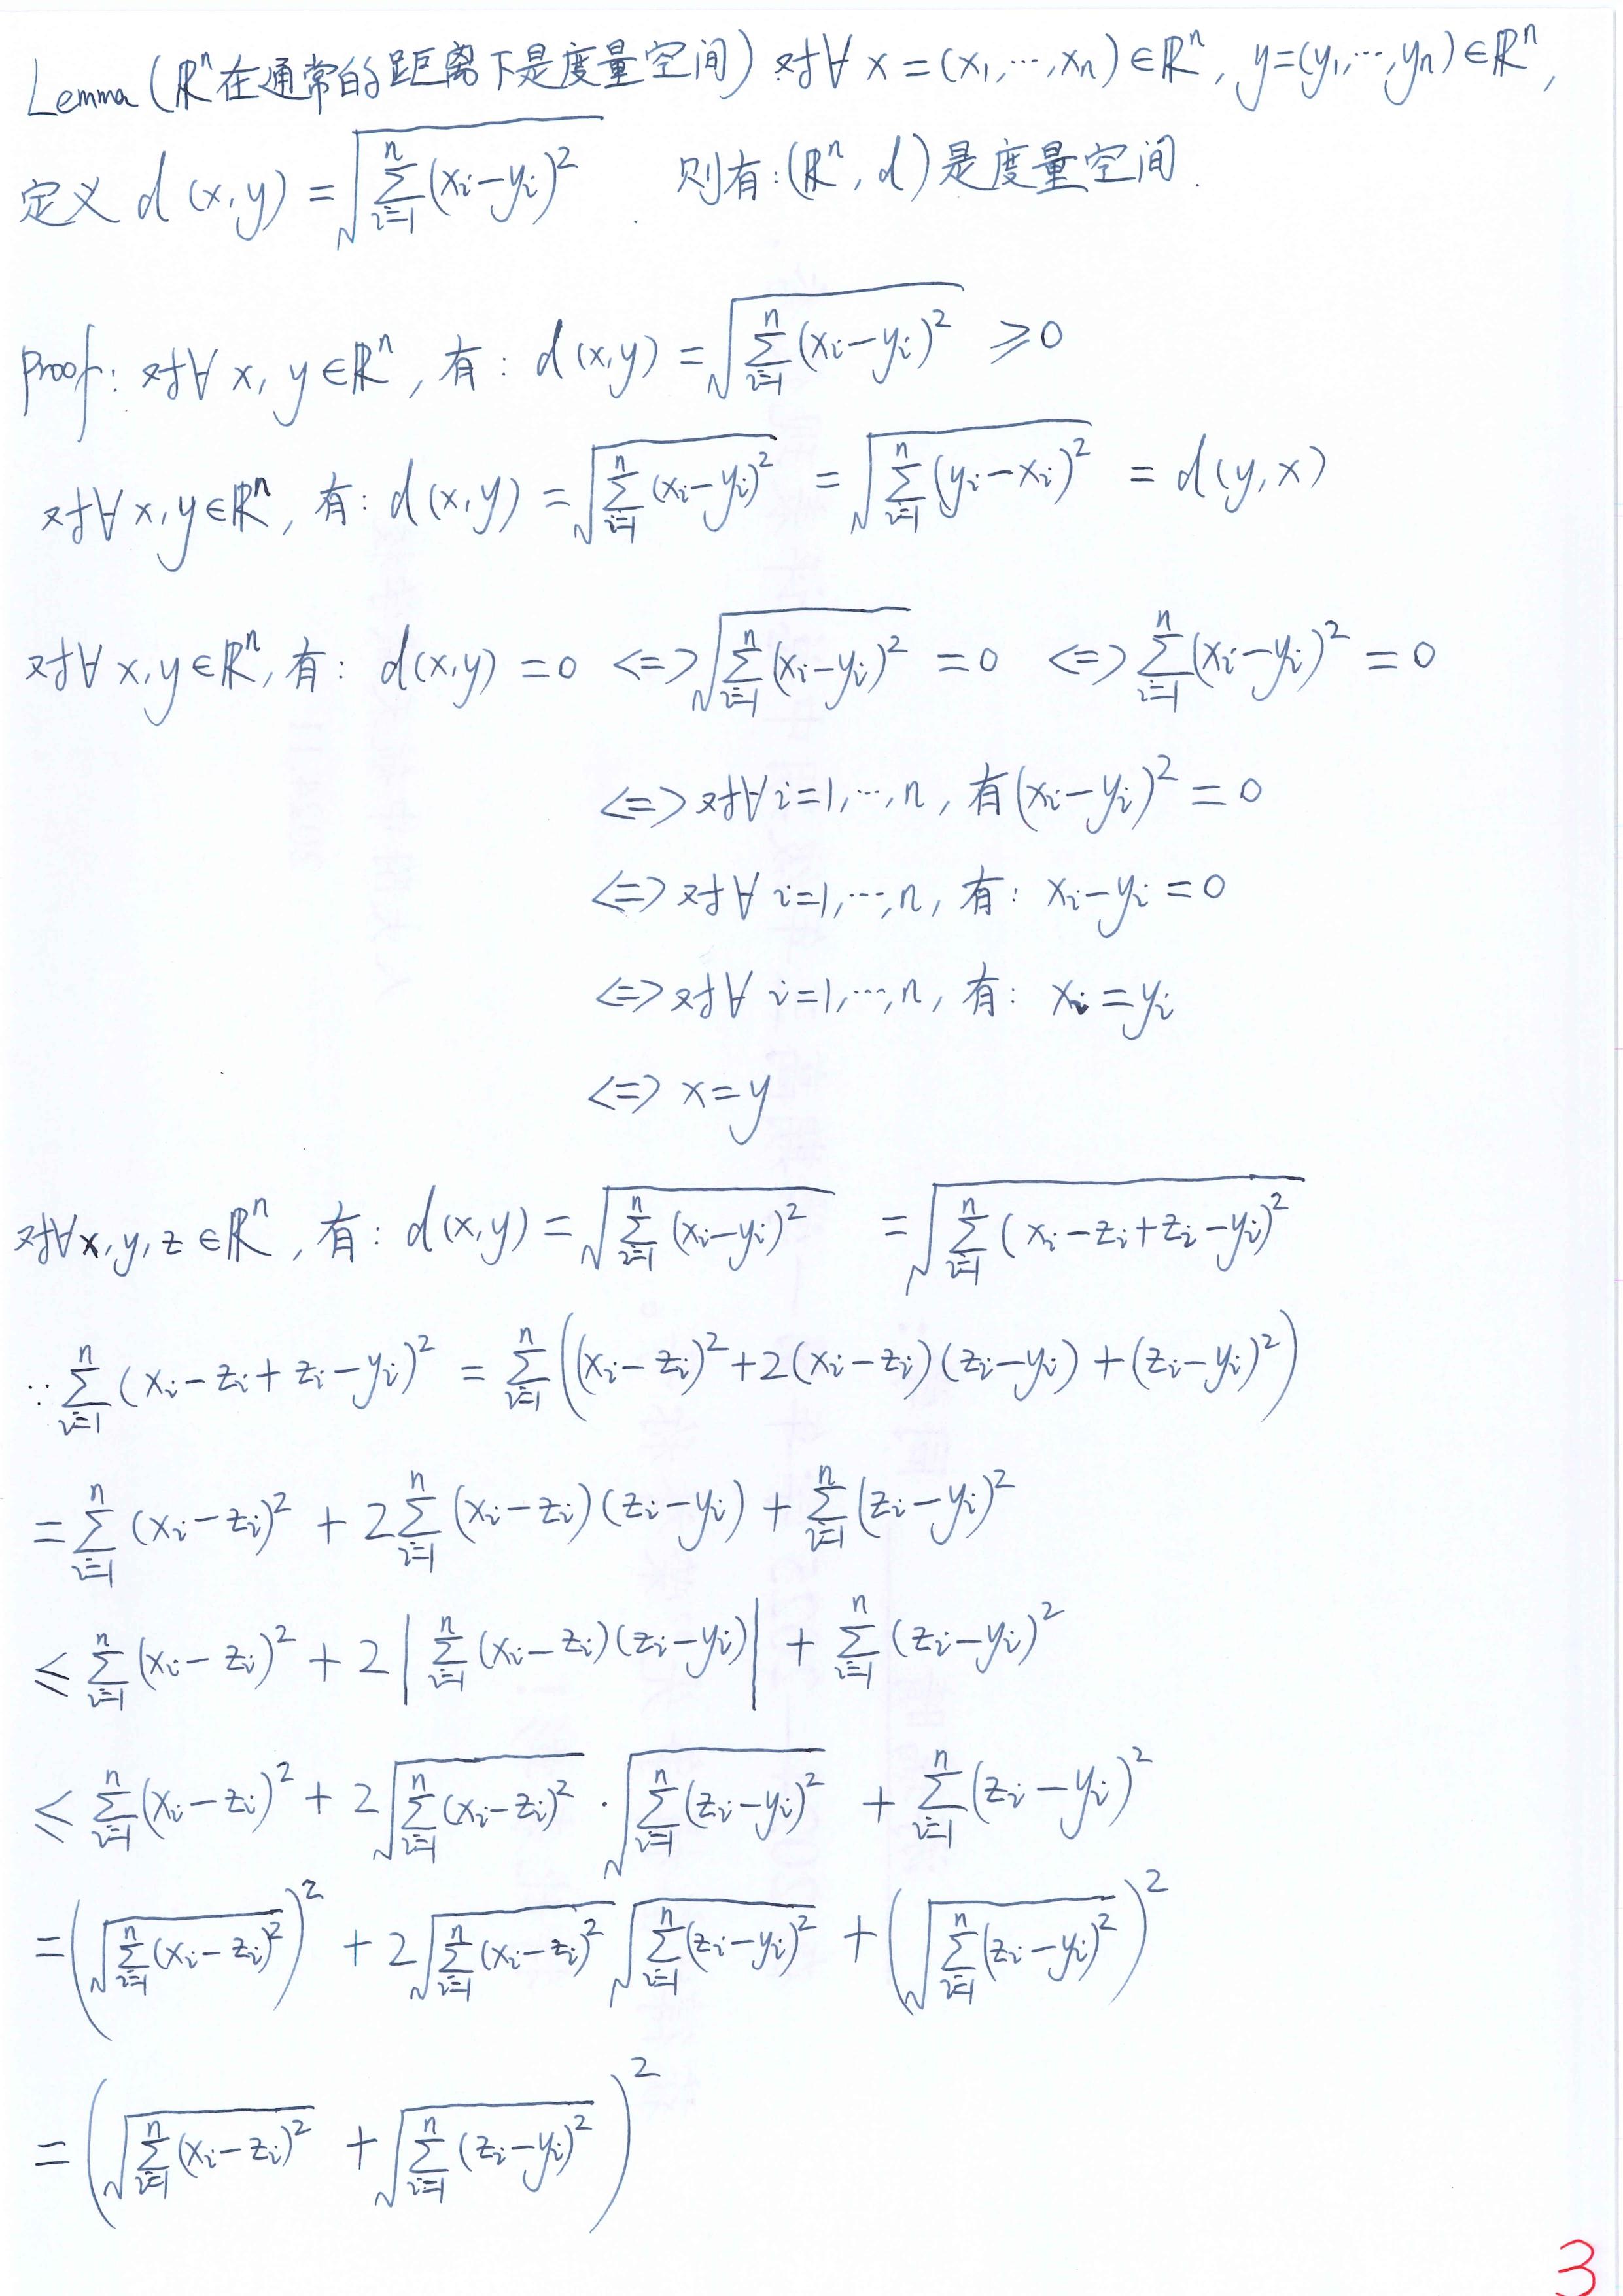 Lemma (ℝⁿ在通常的距离下是度量空间) 对∀ x = (x₁,⋯,xₙ) ∈ ℝⁿ, y=(y₁,⋯,yₙ) ∈ ℝⁿ,
定义 d(x,y) = √(∑_{i=1}^{n} (xᵢ−yᵢ)²) . 则有: (ℝⁿ, d) 是度量空间.
Proof: 对∀ x, y ∈ ℝⁿ, 有: d(x,y) = √(∑_{i=1}^{n} (xᵢ−yᵢ)²) ⩾ 0
对∀ x, y ∈ ℝⁿ, 有: d(x,y) = √(∑_{i=1}^{n} (xᵢ−yᵢ)²) = √(∑_{i=1}^{n} (yᵢ−xᵢ)²) = d(y,x)
对∀ x, y ∈ ℝⁿ, 有: d(x,y) = 0 <=> √(∑_{i=1}^{n} (xᵢ−yᵢ)²) = 0 <=> ∑_{i=1}^{n} (xᵢ−yᵢ)² = 0
<=> 对∀ i=1,⋯,n, 有 (xᵢ−yᵢ)² = 0
<=> 对∀ i=1,⋯,n, 有: xᵢ−yᵢ = 0
<=> 对∀ i=1,⋯,n, 有: xᵢ = yᵢ
<=> x = y
对∀ x, y, z ∈ ℝⁿ, 有: d(x,y) = √(∑_{i=1}^{n} (xᵢ−yᵢ)²) = √(∑_{i=1}^{n} (xᵢ−zᵢ+zᵢ−yᵢ)²)
∵ ∑_{i=1}^{n} (xᵢ−zᵢ+zᵢ−yᵢ)² = ∑_{i=1}^{n} ((xᵢ−zᵢ)²+2(xᵢ−zᵢ)(zᵢ−yᵢ)+(zᵢ−yᵢ)²)
= ∑_{i=1}^{n} (xᵢ−zᵢ)² + 2∑_{i=1}^{n} (xᵢ−zᵢ)(zᵢ−yᵢ) + ∑_{i=1}^{n} (zᵢ−yᵢ)²
⩽ ∑_{i=1}^{n} (xᵢ−zᵢ)² + 2|∑_{i=1}^{n} (xᵢ−zᵢ)(zᵢ−yᵢ)| + ∑_{i=1}^{n} (zᵢ−yᵢ)²
⩽ ∑_{i=1}^{n} (xᵢ−zᵢ)² + 2√(∑_{i=1}^{n} (xᵢ−zᵢ)²) · √(∑_{i=1}^{n} (zᵢ−yᵢ)²) + ∑_{i=1}^{n} (zᵢ−yᵢ)²
= (√(∑_{i=1}^{n} (xᵢ−zᵢ)²))² + 2√(∑_{i=1}^{n} (xᵢ−zᵢ)²) √(∑_{i=1}^{n} (zᵢ−yᵢ)²) + (√(∑_{i=1}^{n} (zᵢ−yᵢ)²))²
= (√(∑_{i=1}^{n} (xᵢ−zᵢ)²) + √(∑_{i=1}^{n} (zᵢ−yᵢ)²))²
3